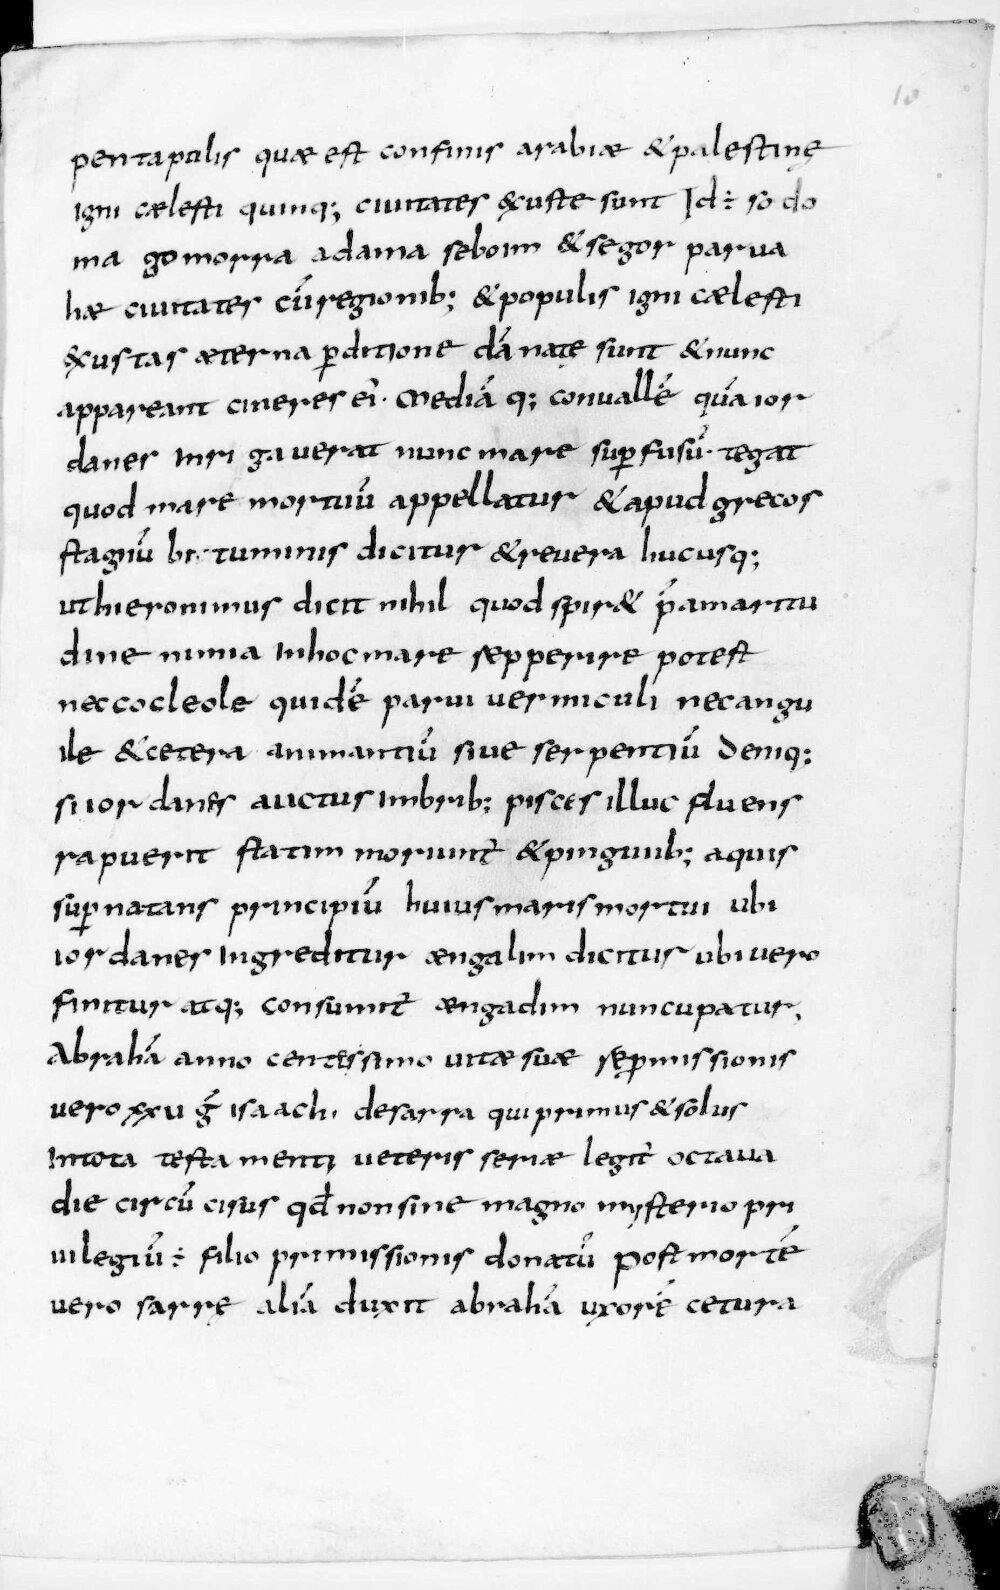 10
pentapulis quæ est confinis arabiæ &palestinę
igni cælesti quinq; ciuitates &xuste sunt Id÷ so do
ma gomorra adama seboim &segor parua
hæ ciuitates cū regionib; &populis igni cælesti
&xustas æterna ꝑditione dānatę sunt &nunc
appareant cineres eī· Mediā q; conuallē quā ior
danes Inri gauerat nunc mare suꝑfusū· tegat
quod mare mortuū appellatur &apud grecos
stagnū bituminis dicitur &reuera hucusq;
uthieronimus dicit nihil quod spir& p̄amaritu
dine nimia Inhoc mare ræpperire potest
nec cocleole quidē parui uermiculi nec angu
ile &cetera animantiū siue serpentiū Deniq;
si iordanes auctus Imbrib; pisces illuc fluens
rapuerit statim moriunt̄ &pinguib; aquis
suꝑnatans principiū huius maris mortui ubi
iordanes Ingreditur ængalim dicitur ubi uero
finitur atq; consumit̄ ængadim nuncupatur,
Abrahā anno centessimo uitæ suæ ræpmissionis
uero xxu ḡ isaach. desarra qui primus &solus
Intota testamenti ueteris seriæ legit̄ octaua
die circū cisus qđ non sine magno mysterio pri
uilegiū ÷ filio primissionis donatū Post mortē
uero sarrę aliā duxit abrahā uxorē cetura